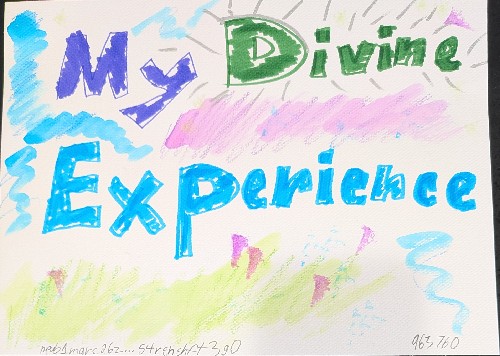 My Divine
Experience
963,760